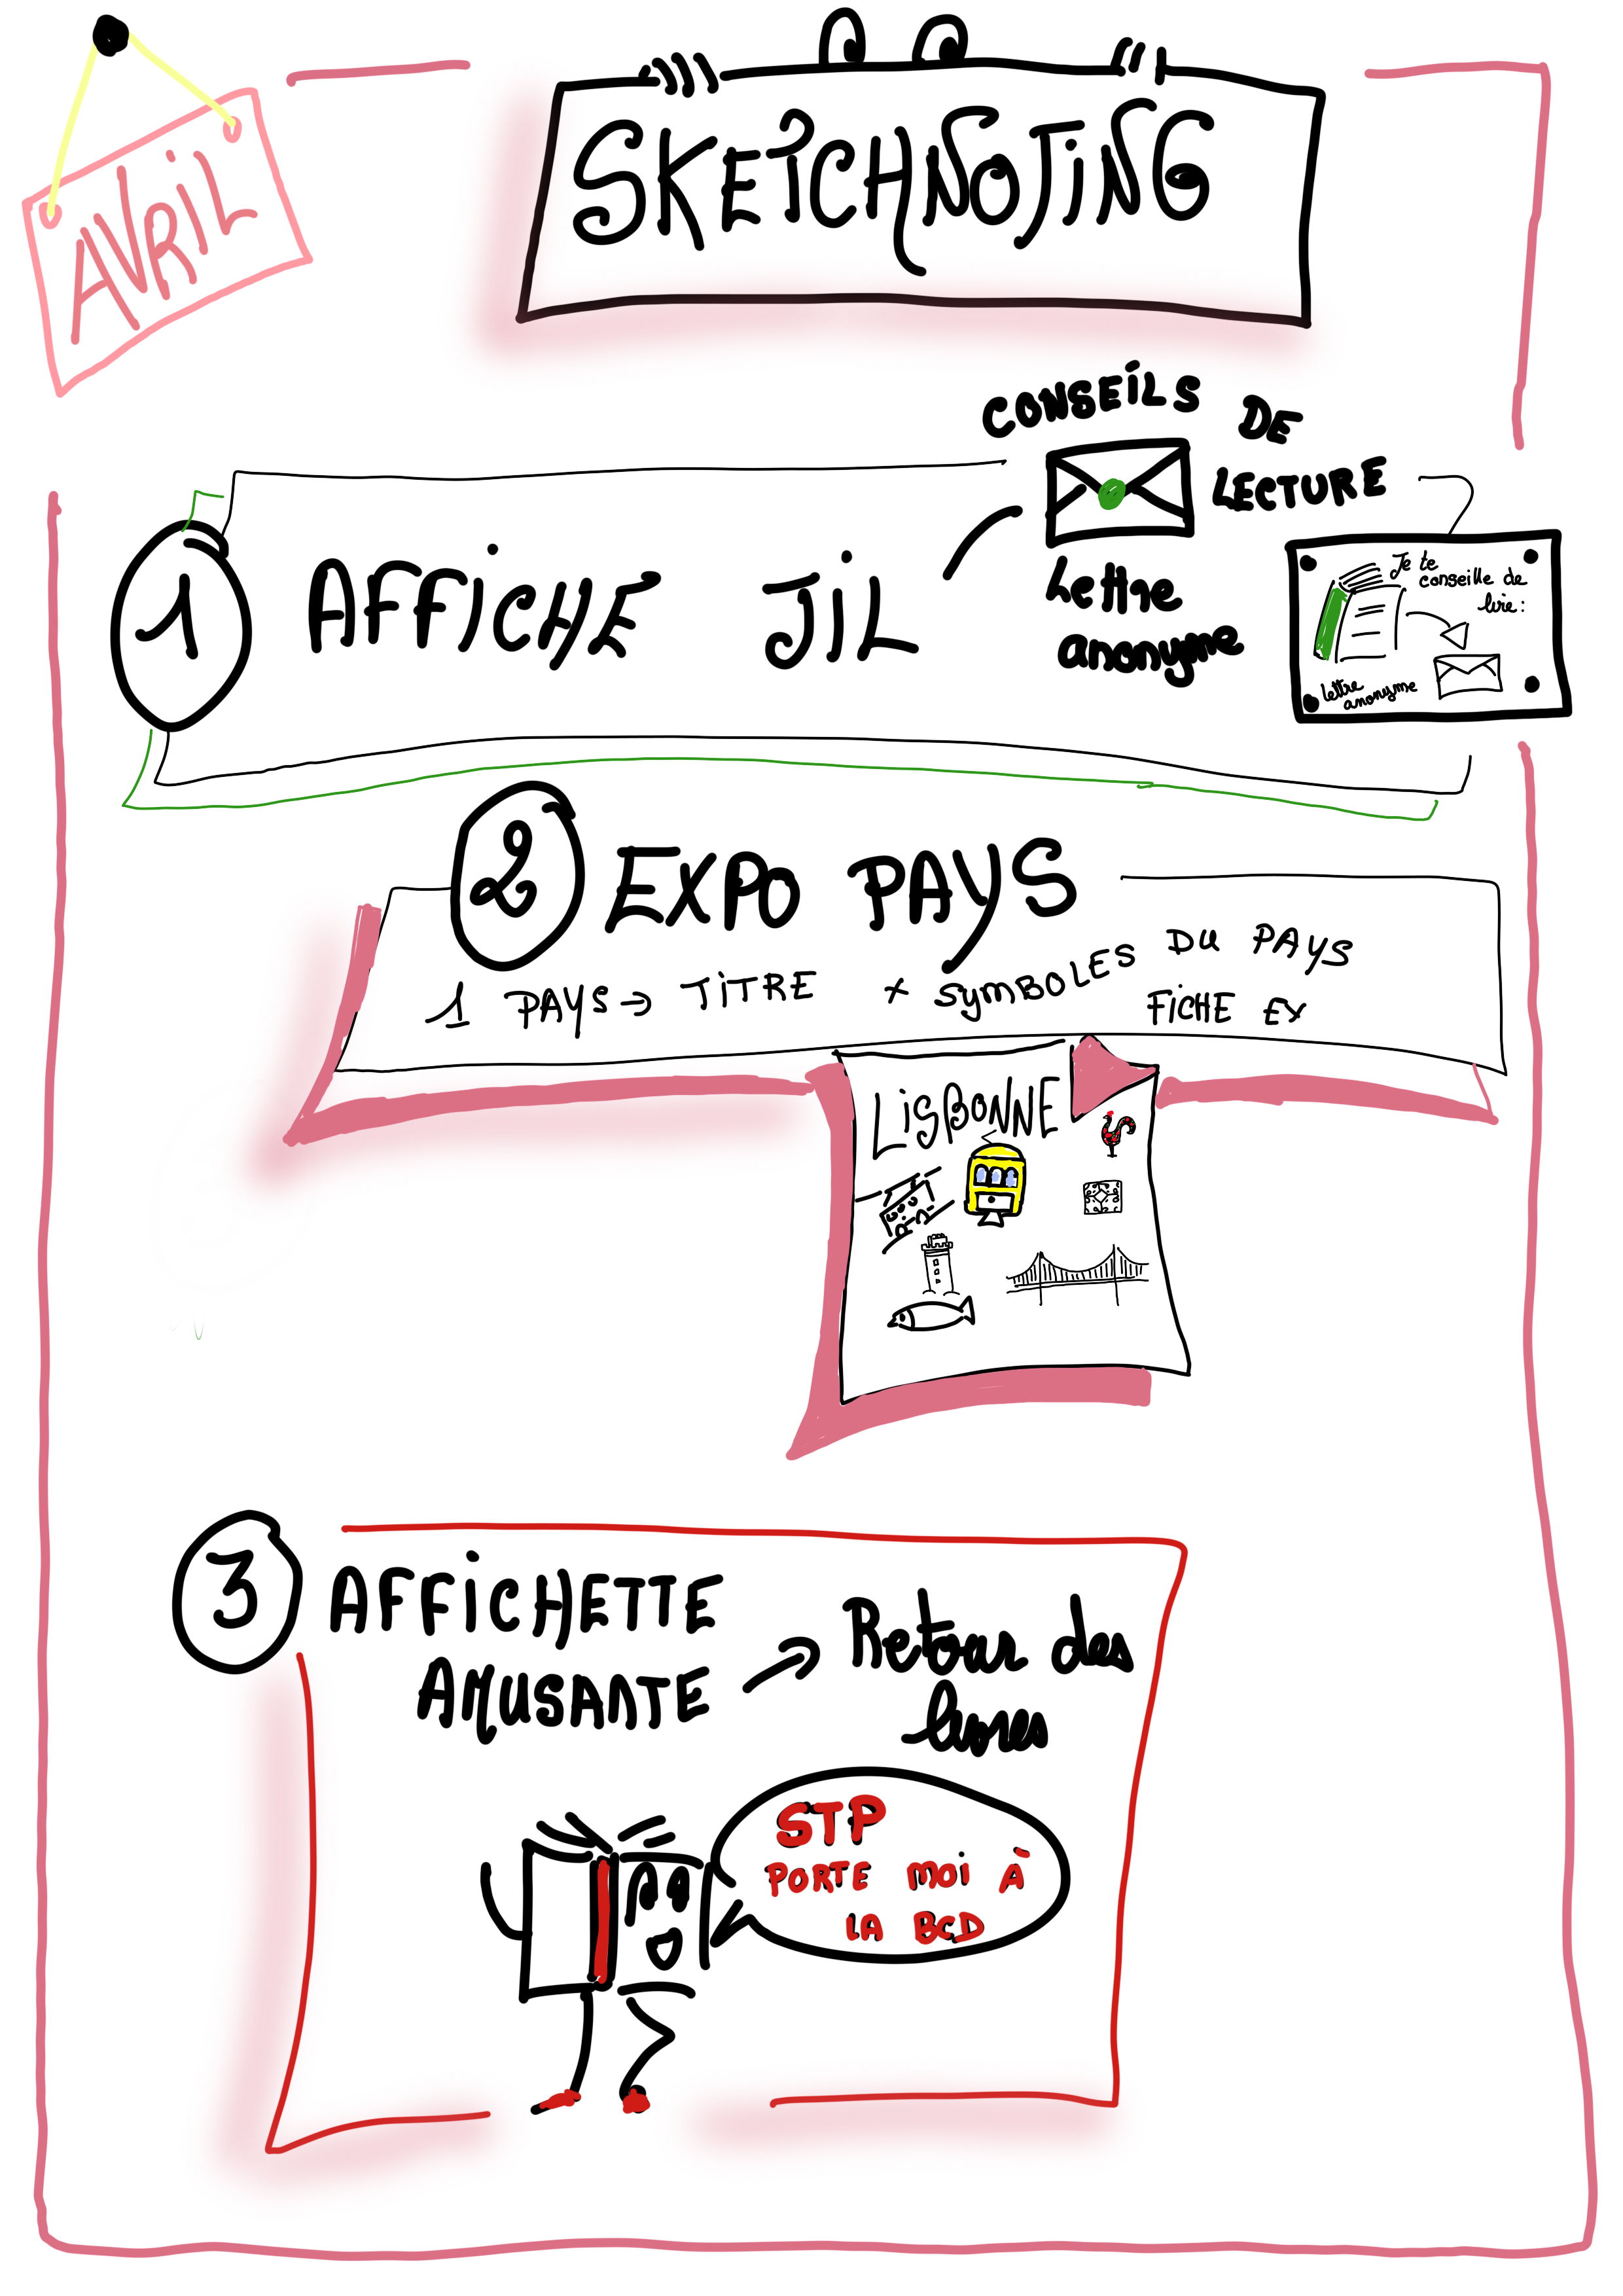 AVRIL
SKETCHNOTING
CONSEILS DE
LECTURE
1 AFFICHE JIL
Lettre
anonyme
Je te
conseille de
lire :
lettre
anonyme
2 EXPO PAYS
1 PAYS → TITRE + SYMBOLES DU PAYS
FICHE EX
LISBONNE
3 AFFICHETTE
AMUSANTE → Retour des
livres
STP
PORTE MOI À
LA BCD